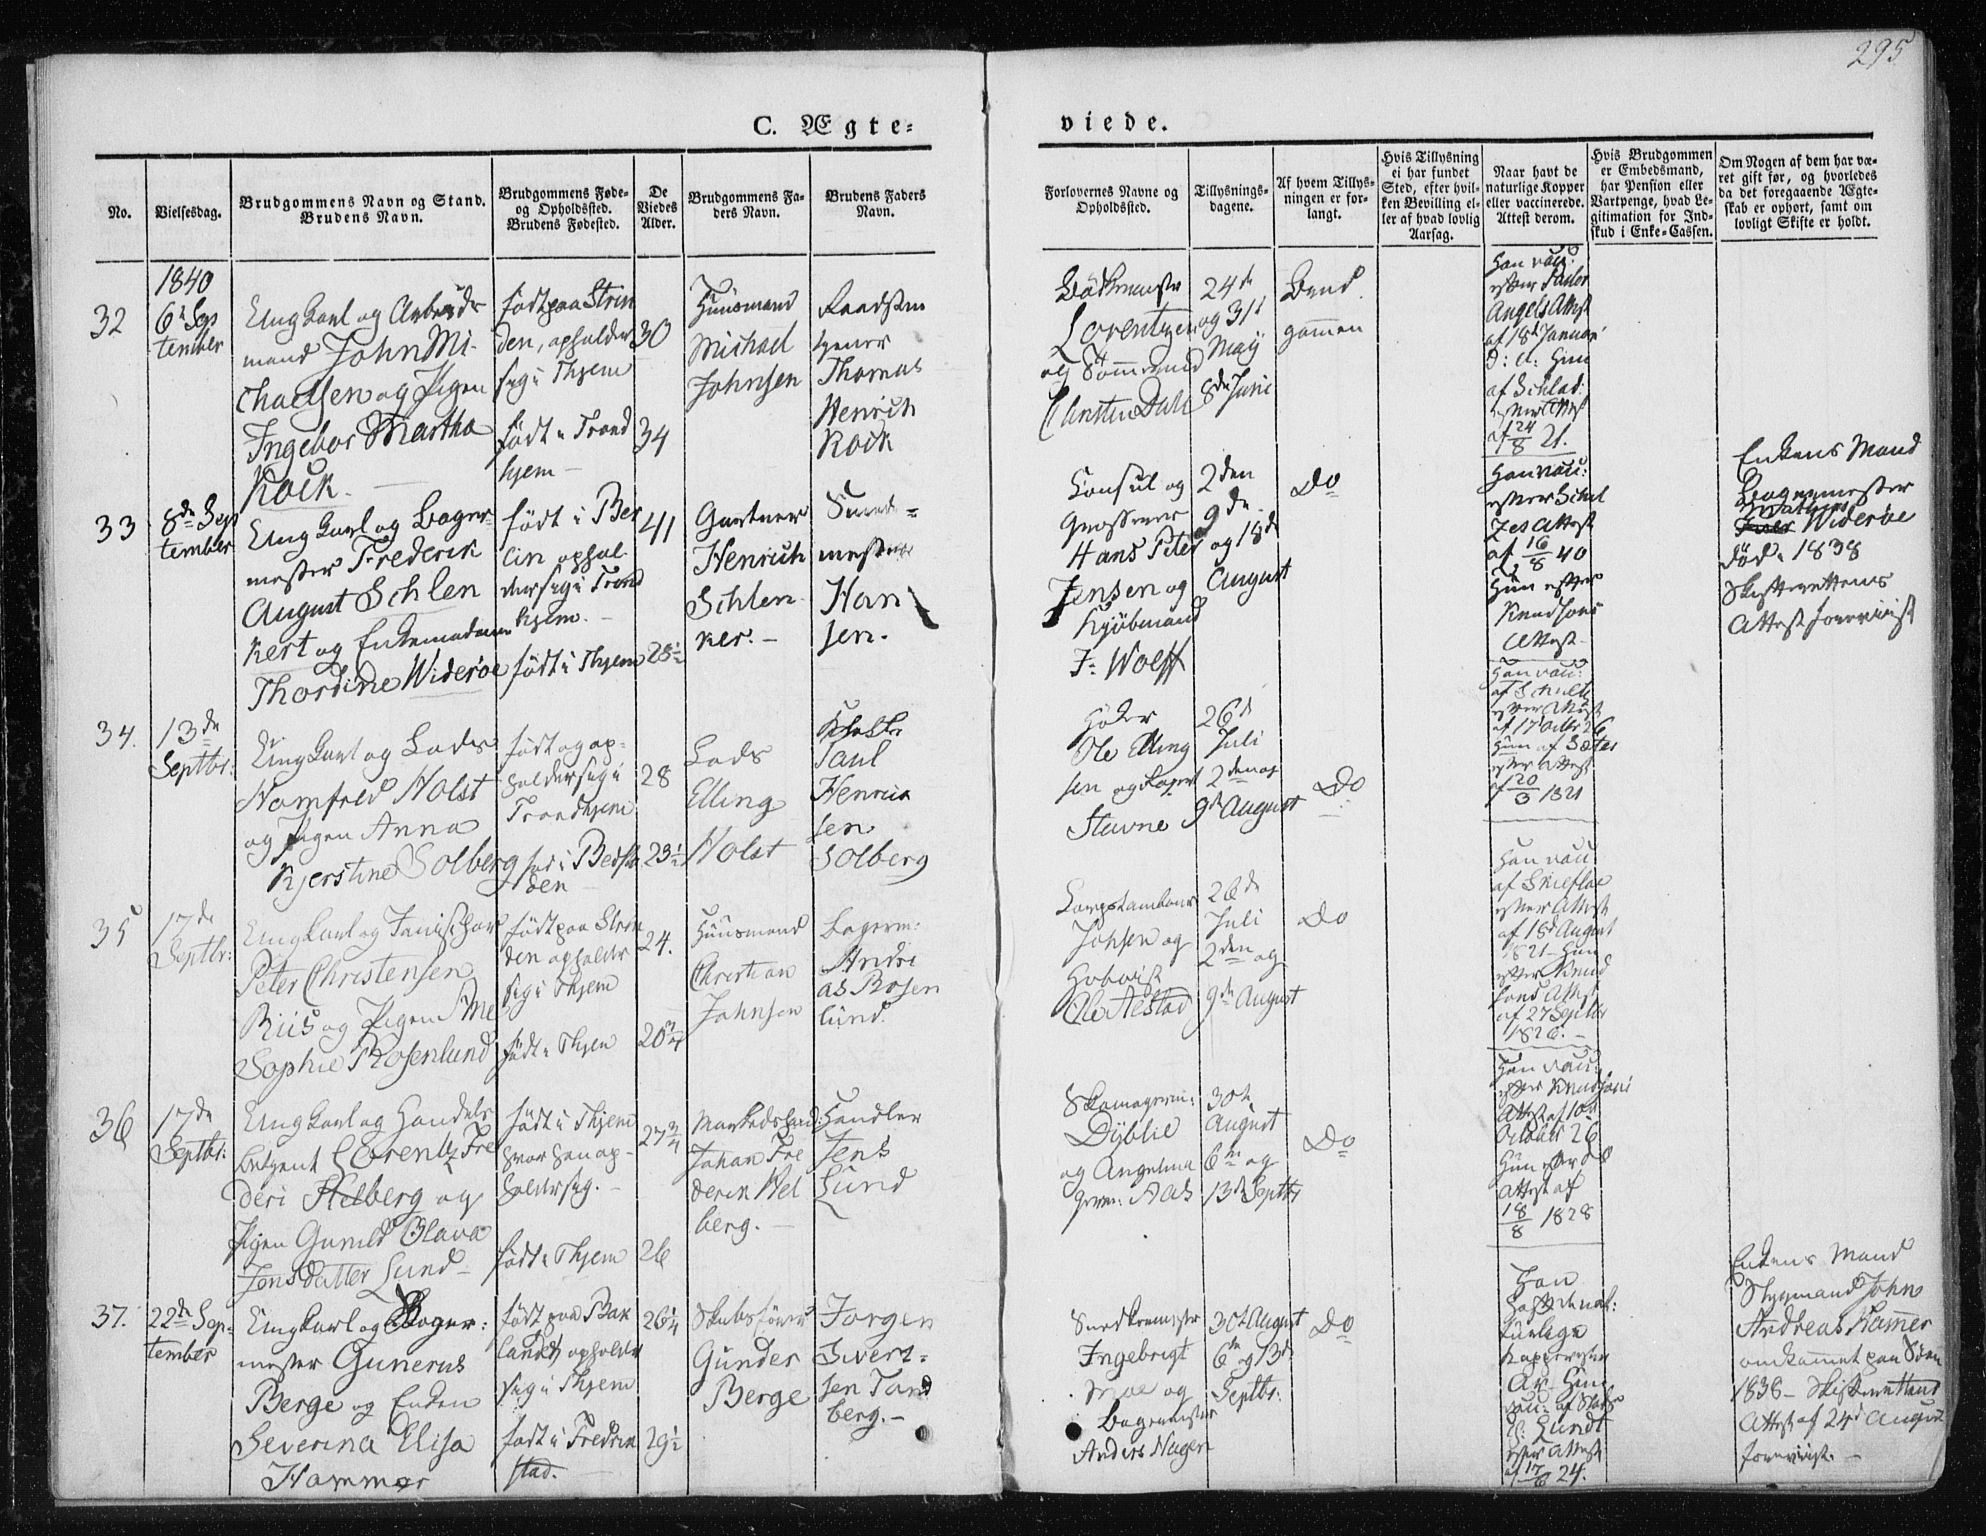 295
C. Ægte=
viede.
No.
Vielsesdag.
Brudgommens Navn og Stand.
Brudens Navn.
Brudgommens Føde-
og Opholdssted.
Brudens Fødested.
De
Viedes
Alder.
Brudgommens Fa-
ders Navn.
Brudens Faders
Navn.
Forlovernes Navne og
Opholdssted.
Tillysnings-
dagene.
Af hvem Tillys-
ningen er for-
langt.
Hvis Tillysning
ei har fundet
Sted, efter hvil-
ken Bevilling el-
ler af hvad lovlig
Aarsag.
Naar havt de
naturlige Kopper
eller vaccinerede.
Attest derom.
Hvis Brudgommen
er Embedsmand,
har Pension eller
Vartpenge, hvad Le-
gitimation for Ind-
skud i Enke-Cassen.
Om Nogen af dem har væ-
ret gift før, og hvorledes
da det foregaaende Ægte-
skab er ophørt, samt om
lovligt Skifte er holdt.
1840
32
6te Sep
tember
Ungkarl og Arbeids
mand John Mi-
chaelsen og Pigen
Ingebor Martha
Kock.
født paa Strin
den, opholder
sig i Thjem
født i Trond
hjem
30
34
Huusmand
Michael
Johnsen
Thomas
Henrich
Kock
Lorentzen
og Tømmermand
Carsten Dahl
24de
og 31te
Maij
8de Juni
Brud
gommen
Han vacc:
efter
Angels Attest
af 18de Januar
af
24/8 21.
33
8de Sep
tember
Ungkarl og Bager-
mester Frederik
August Schlen
kert og Enkemadame
Thordine Widerøe
født i Ber
lin ophol-
der sig i Trond
hjem.
født i Thjem
41
28½
Gartner
Henrich
Schlen
ker.
mester
Han
sen.
Konsul og
Grosserer
Hans Peter
Jensen og
Kjøbmand
F. Wolff
2den
9de
og 18de
August
Do
Han vacc:
efter
Attest
af 16/8 40
Hun efter
Knudsons
Attest
Enkens Mand
Bagermester
Mathias Widerøe
død i 1838
Skifterettens
Attest foreviist
34.
13de
Septbr:
Ungkarl og Lods
Nomfred Holst
og Pigen Anna
Kjerstine Solberg
født og op-
holder sig i
Trondhjem
fød i
den
28
23½
Lods
Elling
Holst
Paul
Henrik
sen
Solberg
Høker
Ole Elling
sen og
Stavne
26de
Juli
2den og
9de August
Do
Han vacc:
af Schulte
efter Attest
af 17 Octbr 26
Hun af Sæter
efter Attest
af 20/3 1821
35
17de
Septbr:
Ungkarl og
Peter Christensen
Riis og Pigen Me
Sophie Rosenlund
født paa Strin
den opholder
sig i Thjem
født i Thjem
24.
20¾
Huusmand
Christian
Johnson
Bagerm:
Andre
as Rosen
lund.
Johsen og
Ole Aestad
26de
Juli
2den og
9de August
Do
Han vacc
af
efter Attest
af 18de August
1821 Hun
efter Knud
sons Attest
af 27 Septbr
1826.
36
17de
Septbr:
Ungkarl og Handels
betjent Lorentz Fre
deri Helberg og
Pigen Gunild Olava
Jensdatter Lund
født i Thjem
hvor han op-
holder sig.
født i Thjem
27¾
26
Johan Fre
derik Hel
berg.
Handler
Jens
Lund
Skomagerm:
Dyblie
og
Aas
30te
August
6te og
13de Septbr
Do
Han vacc:
efter Knudsons
Attest af 10de
October 26
Hun efter do
Attest af
18/8 1828
37.
22de Sep-
tember
Ungkarl og Bager:
mester Gunerus
Berge og Enken
Severina Elisa
Hammer
født paa Bak
landet opholder
sig i Thjem
født i Fredrik
stad.
26¼
29½
Skibsfører
Gunder
Berge
Jørgen
Sivert=
sen Tand
berg.
Snedkermester
Ingebrigt
Moe og
Bagermester
Anders Hagen
30te August
6te og 13de
Septbr:
Do
Han
havt de nat:
turlige
Kopper efter
At. Hun
vacc: af
Lundt
efter Attest
af 17/6 24.
Enkens Mand
Styrmand John
Andreas Hamer
omkommet paa Søen
1838 - Skifterettens
Attest af 24de August
foreviist.